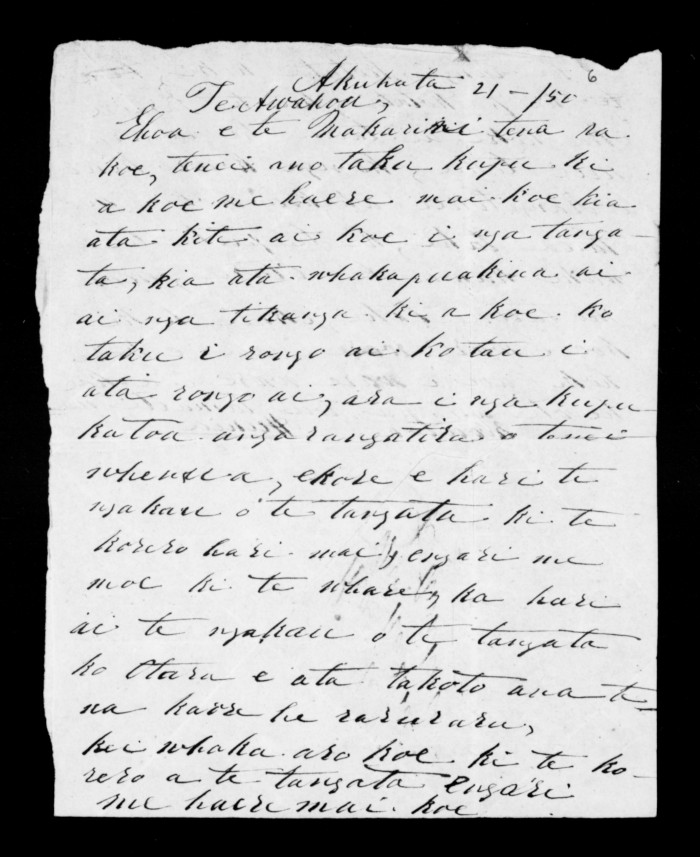 6
Akuhata 21 - /50
Te Awahou,
Ehoa e te Makarini tena ra
koe, tenei ano taku kupu ki
a koe me haere mai koe kia
ata kite ai koe i nga tanga-
ta, kia ata whakapuakina ai
ai nga tikanga ki a koe. ko
taku i rongo ai ko tau i
ata rongo ai, ara i nga kupu
katoa anga rangatira o tenei
whenua, ekore e hari te
ngakau o te tangata ki te
korero hari mai, engari me
moe ki te whare, ka hari
ai te ngakau o te tangata
ko Otara e ata takoto ana te-
na kaore he raruraru,
kei whaka aro koe ki te ko-
rero a te tangata engari
me haere mai koe